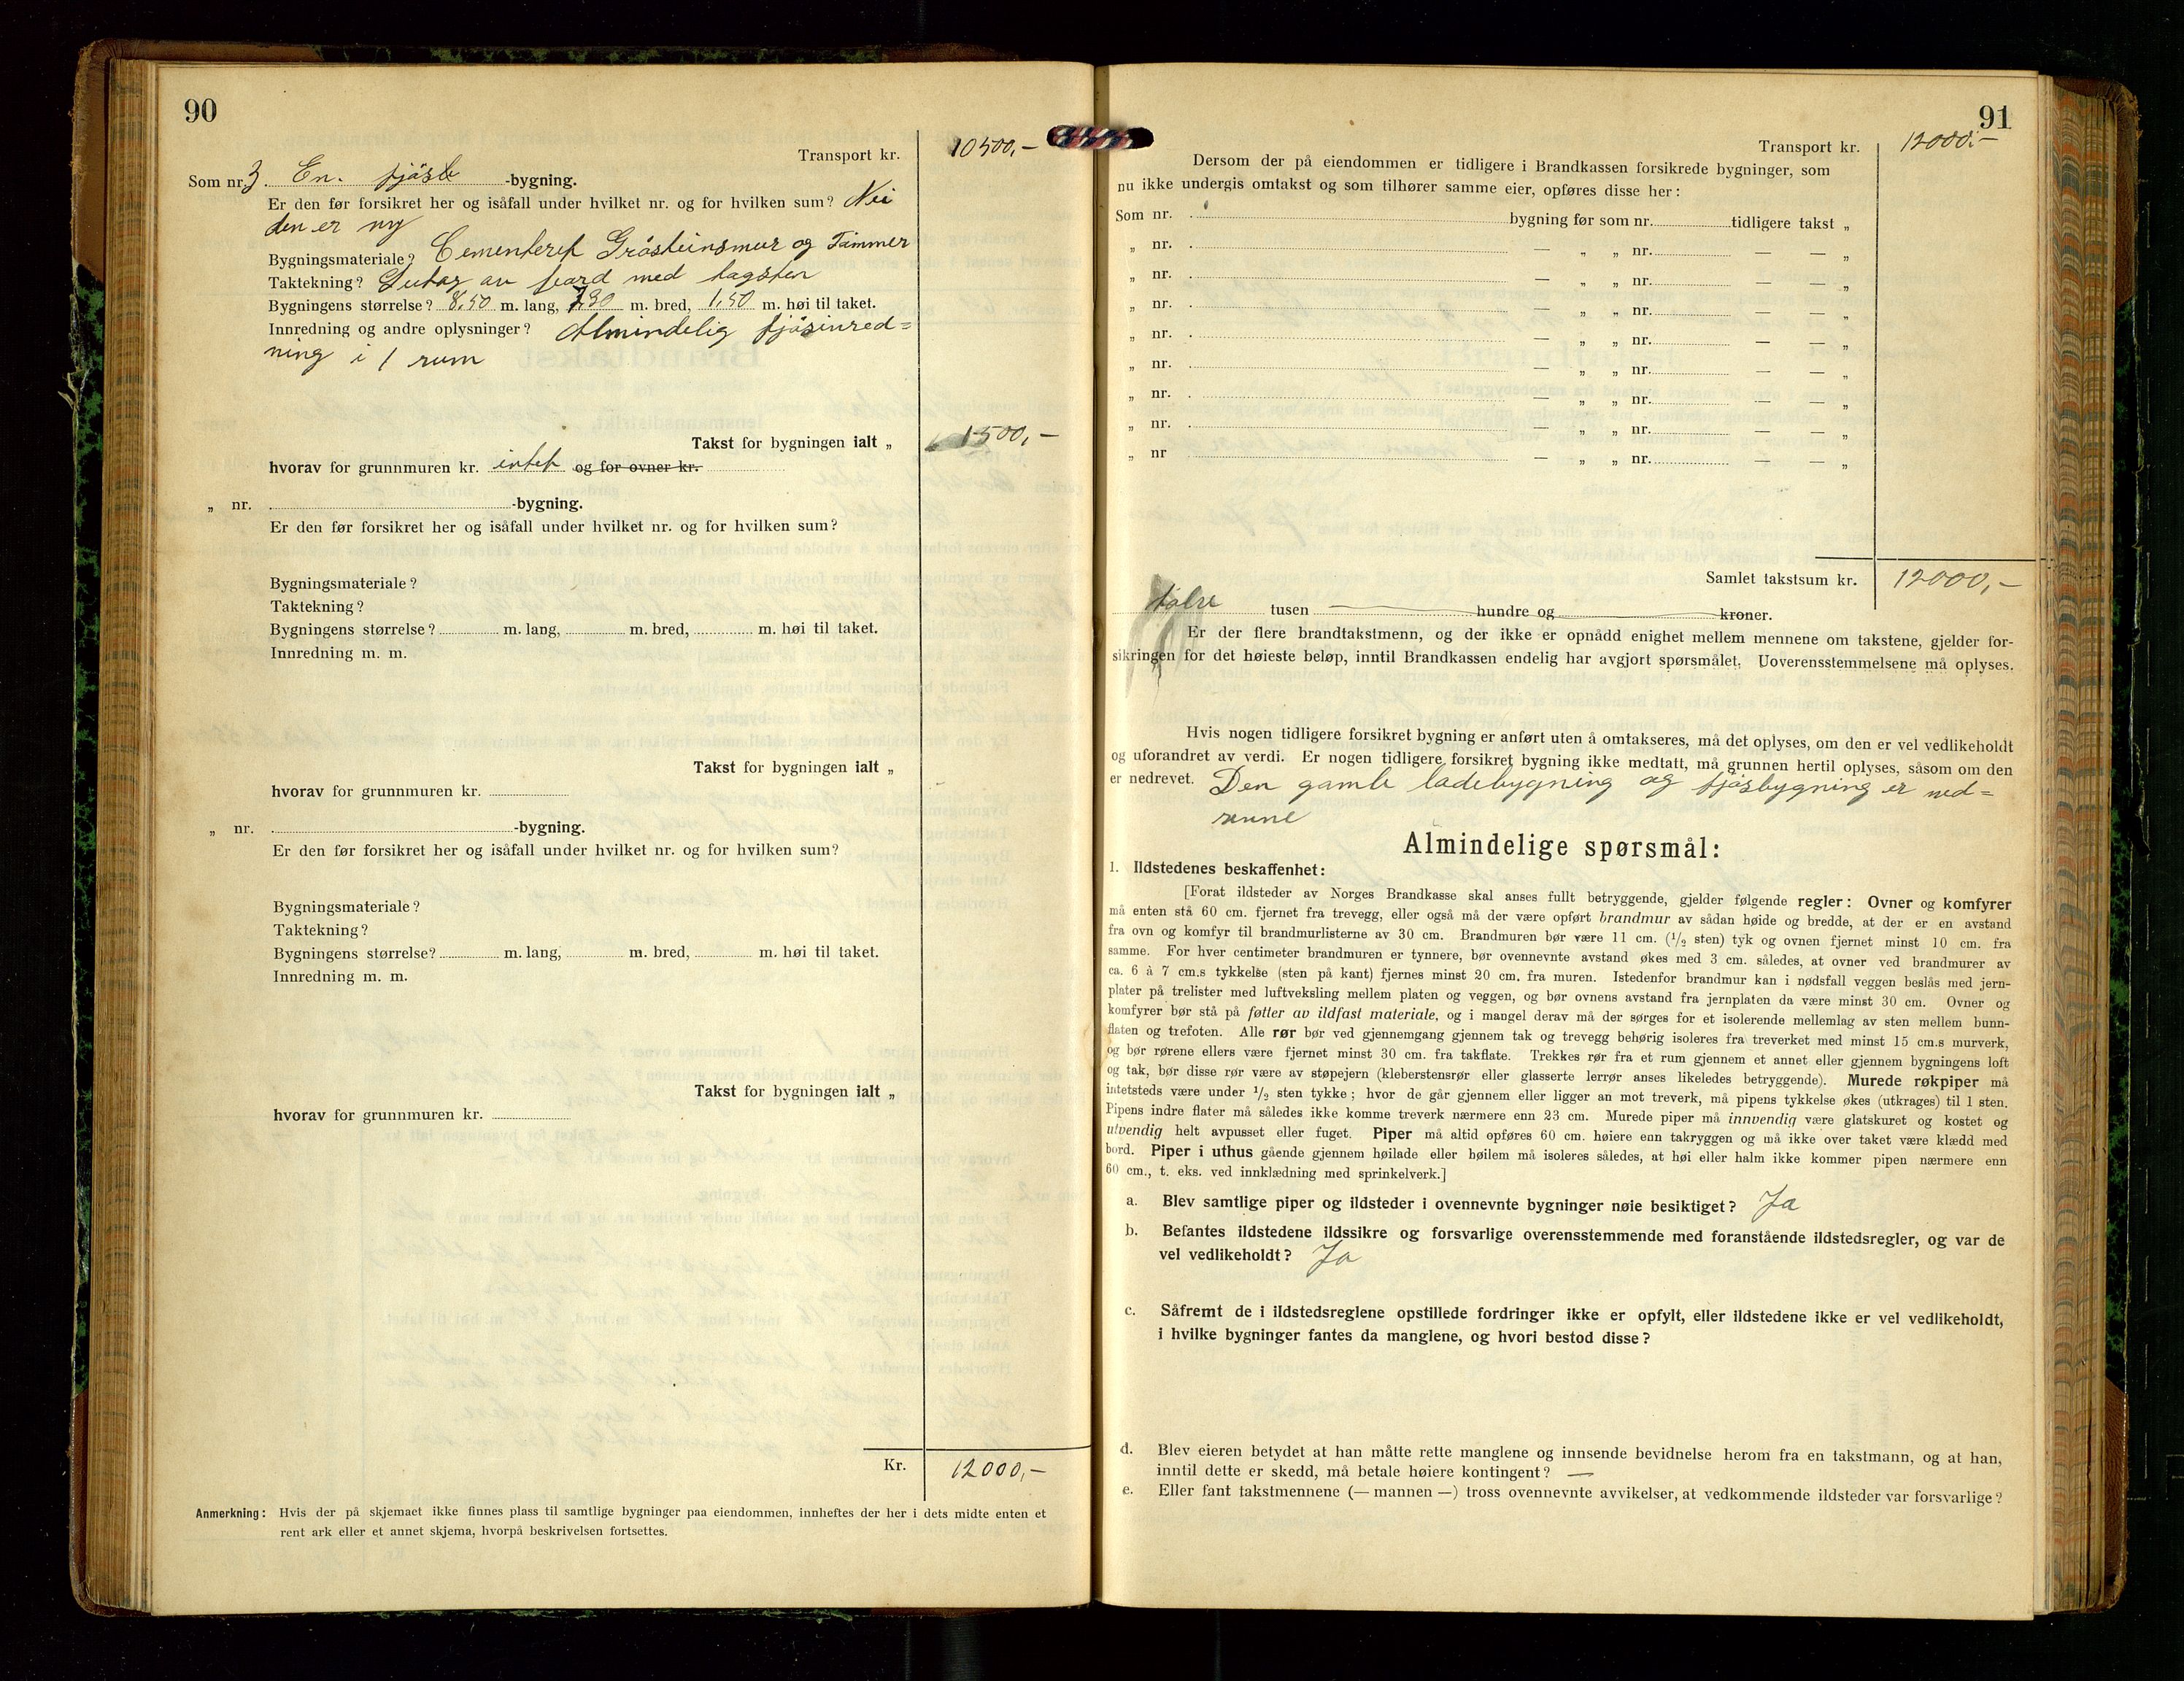 90
Transport kr. 10500,-
Som nr. 3. En. fjøse -bygning.
Er den før forsikret her og isåfall under hvilket nr. og for hvilken sum? Nei
den er ny
Bygningsmateriale? Cementeret Gråsteinsmur og Tømmer
Taktekning? Sutag av bord med tagsten
Bygningens størrelse? 8,50 m. lang, 7,30 m. bred, 1,50 m. høi til taket.
Innredning og andre oplysninger? Almindelig fjøsinred=
ning i 1 rum
Takst for bygningen ialt „ 1500,-
hvorav for grunnmuren kr. intet og for ovner kr.
„ nr. -bygning.
Er den før forsikret her og isåfall under hvilket nr. og for hvilken sum?
Bygningsmateriale?
Taktekning?
Bygningens størrelse? m. lang, m. bred, m. høi til taket.
Innredning m. m.
Takst for bygningen ialt „
hvorav for grunnmuren kr.
„ nr. -bygning.
Er den før forsikret her og isåfall under hvilket nr. og for hvilken sum?
Bygningsmateriale?
Taktekning?
Bygningens størrelse? m. lang, m. bred, m. høi til taket.
Innredning m. m.
Takst for bygningen ialt „
hvorav for grunnmuren kr.
Kr. 12000,-
Anmerkning: Hvis der på skjemaet ikke finnes plass til samtlige bygninger paa eiendommen, innheftes der her i dets midte enten et
rent ark eller et annet skjema, hvorpå beskrivelsen fortsettes.
91
Transport kr. 12000.-
Dersom der på eiendommen er tidligere i Brandkassen forsikrede bygninger, som
nu ikke undergis omtakst og som tilhører samme eier, opføres disse her:
Som nr. bygning før som nr. tidligere takst „
„ nr. — „ „ nr. — — „
„ nr. — „ „ nr. — — „
„ nr. — „ „ nr. — — „
„ nr. — „ „ nr. — — „
„ nr. — „ „ nr. — — „
„ nr. — „ „ nr. — — „
„ nr. — „ „ nr. — — „
„ nr — „ „ nr. — — „
Samlet takstsum kr. 12000,-
tolv tusen — hundre og — kroner.
Er der flere brandtakstmenn, og der ikke er opnådd enighet mellem mennene om takstene, gjelder for-
sikringen for det høieste beløp, inntil Brandkassen endelig har avgjort spørsmålet. Uoverensstemmelsene må oplyses.
Hvis nogen tidligere forsikret bygning er anført uten å omtakseres, må det oplyses, om den er vel vedlikeholdt
og uforandret av verdi. Er nogen tidligere forsikret bygning ikke medtatt, må grunnen hertil oplyses, såsom om den
er nedrevet. Den gamle ladebygning og fjøsbygning er ned=

Almindelige spørsmål:
1. Ildstedenes beskaffenhet:
[Forat ildsteder av Norges Brandkasse skal anses fullt betryggende, gjelder følgende regler: Ovner og komfyrer
må enten stå 60 cm. fjernet fra trevegg, eller også må der være opført brandmur av sådan høide og bredde, at der er en avstand
fra ovn og komfyr til brandmurlisterne av 30 cm. Brandmuren bør være 11 cm. (1/2 sten) tyk og ovnen fjernet minst 10 cm. fra
samme. For hver centimeter brandmuren er tynnere, bør ovennevnte avstand økes med 3 cm. således, at ovner ved brandmurer av
ca. 6 à 7 cm.s tykkelse (sten på kant) fjernes minst 20 cm. fra muren. Istedenfor brandmur kan i nødsfall veggen beslås med jern-
plater på trelister med luftveksling mellem platen og veggen, og bør ovnens avstand fra jernplaten da være minst 30 cm. Ovner og
komfyrer bør stå på føtter av ildfast materiale, og i mangel derav må der sørges for et isolerende mellemlag av sten mellem bunn-
flaten og trefoten. Alle rør bør ved gjennemgang gjennem tak og trevegg behørig isoleres fra treverket med minst 15 cm.s murverk,
og bør rørene ellers være fjernet minst 30 cm. fra takflate. Trekkes rør fra et rum gjennem et annet eller gjennem bygningens loft
og tak, bør disse rør være av støpejern (kleberstensrør eller glasserte lerrør anses likeledes betryggende). Murede røkpiper må
intetsteds være under 1/2 sten tykke; hvor de går gjennem eller ligger an mot treverk, må pipens tykkelse økes (utkrages) til 1 sten.
Pipens indre flater må således ikke komme treverk nærmere enn 23 cm. Murede piper må innvendig være glatskuret og kostet og
utvendig helt avpusset eller fuget. Piper må altid opføres 60 cm. høiere enn takryggen og må ikke over taket være klædd med
bord. Piper i uthus gående gjennem høilade eller høilem må isoleres således, at høi eller halm ikke kommer pipen nærmere enn
60 cm., t. eks. ved innklædning med sprinkelverk.]
a. Blev samtlige piper og ildsteder i ovennevnte bygninger nøie besiktiget? Ja
b. Befantes ildstedene ildssikre og forsvarlige overensstemmende med foranstående ildstedsregler, og var de
vel vedlikeholdt? Ja
c. Såfremt de i ildstedsreglene opstillede fordringer ikke er opfylt, eller ildstedene ikke er vel vedlikeholdt,
i hvilke bygninger fantes da manglene, og hvori bestod disse?
d. Blev eieren betydet at han måtte rette manglene og innsende bevidnelse herom fra en takstmann, og at han,
inntil dette er skedd, må betale høiere kontingent? —
e. Eller fant takstmennene (— mannen —) tross ovennevnte avvikelser, at vedkommende ildsteder var forsvarlige?